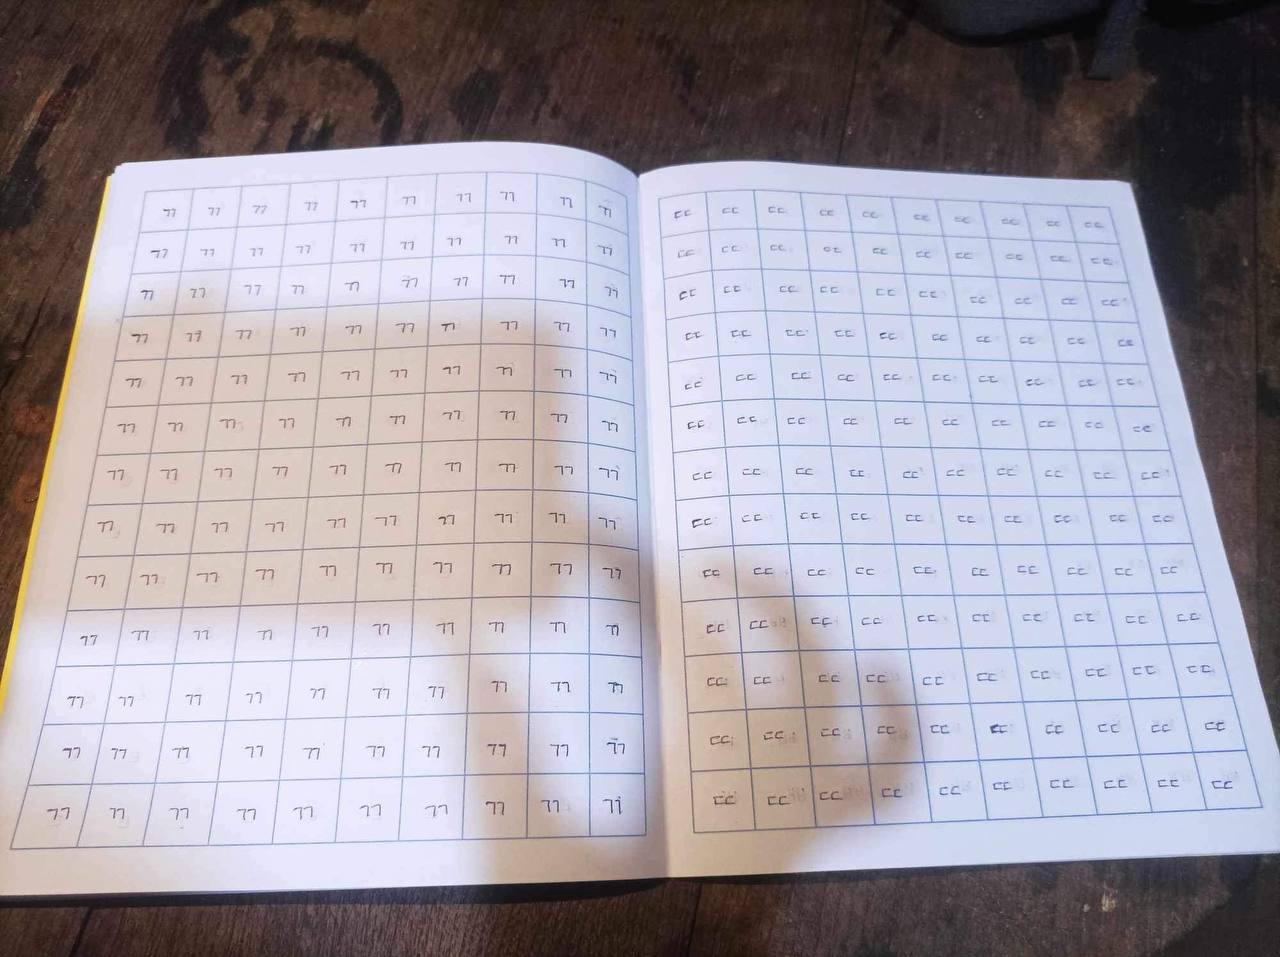 ㄲ ㄲ ㄲ ㄲ ㄲ ㄲ ㄲ ㄲ ㄲ ㄲ
ㄲ ㄲ ㄲ ㄲ ㄲ ㄲ ㄲ ㄲ ㄲ ㄲ
ㄲ ㄲ ㄲ ㄲ ㄲ ㄲ ㄲ ㄲ ㄲ ㄲ
ㄲ ㄲ ㄲ ㄲ ㄲ ㄲ ㄲ ㄲ ㄲ ㄲ
ㄲ ㄲ ㄲ ㄲ ㄲ ㄲ ㄲ ㄲ ㄲ ㄲ
ㄲ ㄲ ㄲ ㄲ ㄲ ㄲ ㄲ ㄲ ㄲ ㄲ
ㄲ ㄲ ㄲ ㄲ ㄲ ㄲ ㄲ ㄲ ㄲ ㄲ
ㄲ ㄲ ㄲ ㄲ ㄲ ㄲ ㄲ ㄲ ㄲ ㄲ
ㄲ ㄲ ㄲ ㄲ ㄲ ㄲ ㄲ ㄲ ㄲ ㄲ
ㄲ ㄲ ㄲ ㄲ ㄲ ㄲ ㄲ ㄲ ㄲ ㄲ
ㄲ ㄲ ㄲ ㄲ ㄲ ㄲ ㄲ ㄲ ㄲ ㄲ
ㄲ ㄲ ㄲ ㄲ ㄲ ㄲ ㄲ ㄲ ㄲ ㄲ
ㄲ ㄲ ㄲ ㄲ ㄲ ㄲ ㄲ ㄲ ㄲ ㄲ
ㄸ ㄸ ㄸ ㄸ ㄸ ㄸ ㄸ ㄸ ㄸ ㄸ
ㄸ ㄸ ㄸ ㄸ ㄸ ㄸ ㄸ ㄸ ㄸ ㄸ
ㄸ ㄸ ㄸ ㄸ ㄸ ㄸ ㄸ ㄸ ㄸ ㄸ
ㄸ ㄸ ㄸ ㄸ ㄸ ㄸ ㄸ ㄸ ㄸ ㄸ
ㄸ ㄸ ㄸ ㄸ ㄸ ㄸ ㄸ ㄸ ㄸ ㄸ
ㄸ ㄸ ㄸ ㄸ ㄸ ㄸ ㄸ ㄸ ㄸ ㄸ
ㄸ ㄸ ㄸ ㄸ ㄸ ㄸ ㄸ ㄸ ㄸ ㄸ
ㄸ ㄸ ㄸ ㄸ ㄸ ㄸ ㄸ ㄸ ㄸ ㄸ
ㄸ ㄸ ㄸ ㄸ ㄸ ㄸ ㄸ ㄸ ㄸ ㄸ
ㄸ ㄸ ㄸ ㄸ ㄸ ㄸ ㄸ ㄸ ㄸ ㄸ
ㄸ ㄸ ㄸ ㄸ ㄸ ㄸ ㄸ ㄸ ㄸ ㄸ
ㄸ ㄸ ㄸ ㄸ ㄸ ㄸ ㄸ ㄸ ㄸ ㄸ
ㄸ ㄸ ㄸ ㄸ ㄸ ㄸ ㄸ ㄸ ㄸ ㄸ